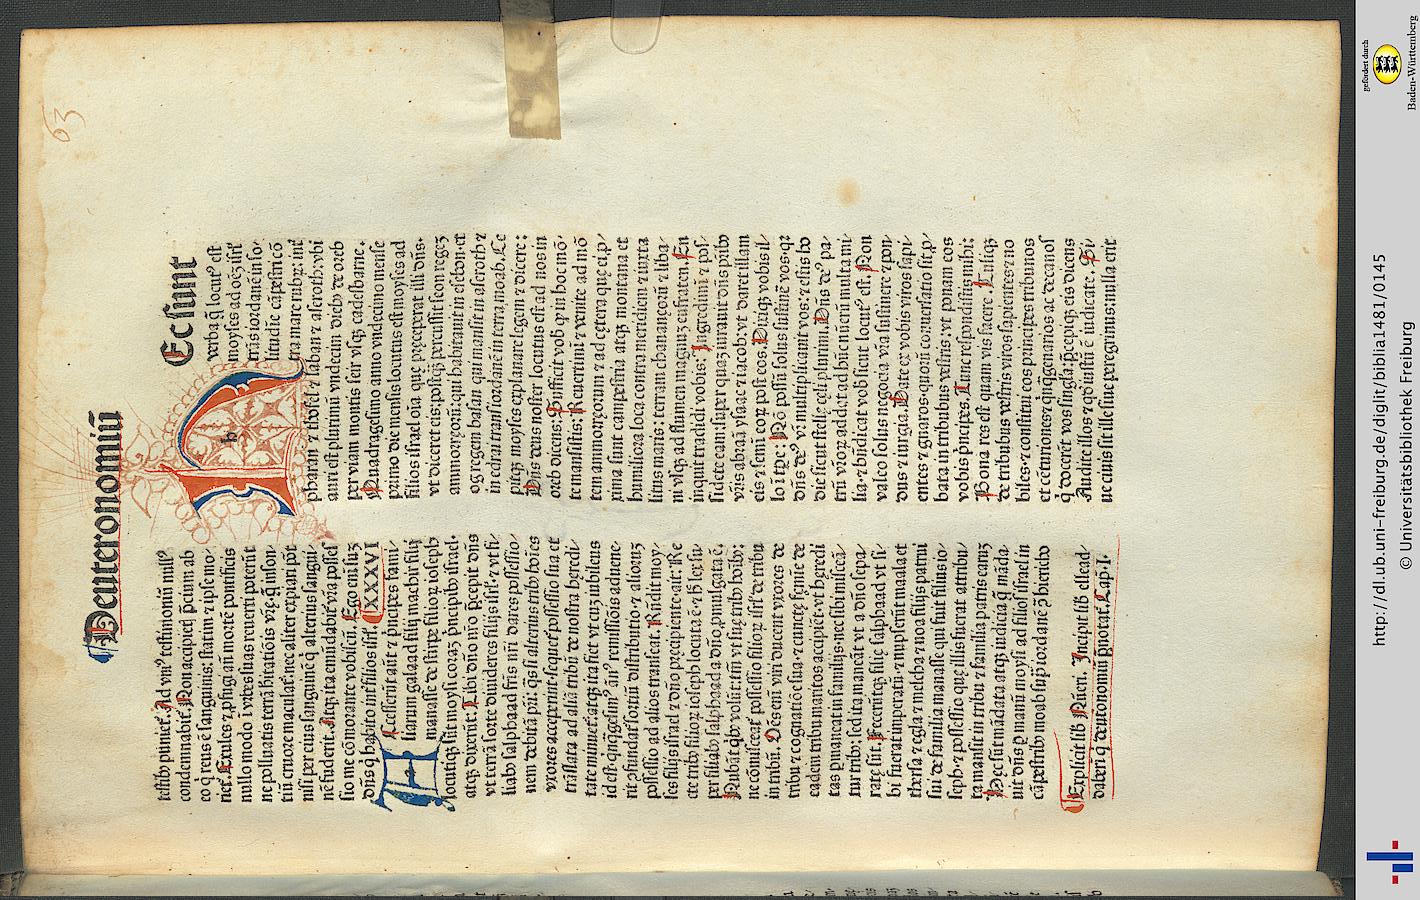 63
Deuteronomiū
testibꝰ puniet᷑. Ad vniꝰ testimoniū nullꝰ
condemnabit᷑. Non accipietꝭ pcium ab
eo q̇ reus ē sanguinis: statim ⁊ ipse mo-
riet᷑. Exules ⁊ ꝓfugi an̄ mortē pontificis
nullo modo ī vrbes suas reuerti poterūt
ne polluatis terrā habitatiōis vr̄ę. q̄ inson-
tiū cruore maculat᷑. nec aliter expiari pōt
nisi per eius sanguinē q̇ alterius sangui-
nē fuderit. Atqꝫ ita emūdabit᷑ vr̄a possess-
sio me cōmorante vobiscū. Ego eni sum
dn̄s q̇ habito int̕ filios isrl̕. XXXVI
Accesserūt aūt ⁊ pncipes fami-
liarum galaad filij machir filij
manasse de stirpe filioꝝ ioseph
locutiqꝫ sūt moysi coram pncipibꝰ israel.
atqꝫ dixerūt. Tibi dn̄o nr̄o p̄cepit dn̄s
vt terrā sorte diuideres filijs isrl̕. ⁊ vt fi-
liabꝰ salphaad fr̄is nr̄i dares possessio-
nem debitā patri. q̇s si alterius tribꝰ hoīes
vxores acceperint. sequet᷑ possessio sua et
trāslata ad aliā tribū de nostra heredi-
tate minuet᷑. atqꝫ ita fiet vt cum iubileus
id est q̇nq̇gesimꝰ ānꝰ remissiōis aduene-
rit ꝓfundat᷑ sortiū distributio. ⁊ alioruꝫ
possessio ad alios transeat. Rn̄dit moy-
ses filijs israel ⁊ dn̄o precipiente ait. Re-
cte tribꝰ filioꝝ ioseph locuta ē. ⁊ h̕ lex su-
per filiabꝰ salphaad a dn̄o ꝓmulgata ē.
Nubāt q̇bꝰ volūt. tm̄ vt suę tribꝰ hoībꝰ:
ne cōmisceat᷑ possessio filioꝝ isrl̕ de tribu
in tribū. Oēs eni viri ducent vxores de
tribu ⁊ cognatiōe sua. ⁊ cuncte femine de
eadem tribu maritos accipiēt. vt heredi-
tas pmaneat in familijs. nec sibi misceā-
tur tribꝰ: sed ita maneāt vt a dn̄o sepa-
rate sūt. Feceruntqꝫ filie salphaad vt si-
bi fuerat imperatū. ⁊ nupserūt maala et
thersa ⁊ egla ⁊ melcha ⁊ noa filijs patrui
sui de familia manasse qui fuit filius io-
seph. ⁊ possessio que illis fuerat attribu-
ta mansit in tribu ⁊ familia patris earuꝫ
Hec sūt mādata atqꝫ iudicia q̄ māda-
uit dn̄s ꝑ manū moysi ad filios israel in
cāpestribꝰ moab suꝑ iordanē ꝯ̄ hiericho
Explicit lib̕ Nūeri. Incipit lib̕ ellead-
dabari q̇ deutronomiū pnotat᷑. Cap. I.
HEc sunt
verba q̄ locutꝰ est
moyses ad oēꝫ isrl̕
trās iordanē in so-
litudīe cāpestri cō-
tra mare rubꝝ: int̕
pharan ⁊ thofel ⁊ laban ⁊ aseroth: vbi
auri est plurimū vndecim dieb̕ de oreb
per viam montis seir vsqꝫ cadesbarne.
Quadragesimo anno vndecimo mense
primo die mensis locutus est moyses ad
filios israel oīa que preceperat illi dn̄s.
vt diceret eis: postqꝫ percussit seon regeꝫ
ammorreoꝝ: qui habitauit in esebon. et
og regem basan qui mansit in aseroth ⁊
in edrai trans iordanē in terra moab. Ce-
pitqꝫ moyses explanare legem ⁊ dicere:
Dn̄s deus noster locutus est ad nos in
oreb dicens: Sufficit vob̕ q̇ in hoc mō-
te mansistis: Reuertimī ⁊ venite ad mō-
tem ammorreorum ⁊ ad cetera que ei ꝓ-
xima sunt campestria atqꝫ montana et
humiliora loca contra meridiem ⁊ iuxta
litus maris: terram chananeoꝝ ⁊ liba-
ni vsqꝫ ad flumen magnuꝫ eufraten. En
inquit tradidi vobis: Ingredimī ⁊ pos-
sidete eam: super quaꝫ iurauit dn̄s patribꝰ
vr̄is abraā ysaac ⁊ iacob: vt daret illam
eis ⁊ semī eorꝝ post eos. Dixiqꝫ vobis il-
lo ī tpe: Nō possū solus sustinē vos: qꝛ
dn̄s deꝰ vr̄ multiplicauit vos: ⁊ estis ho-
die sicut stelle celi plurimi. Dn̄s deꝰ pa-
trū vr̄oꝝ addat ad hūc nūerū multa mi-
lia. ⁊ bn̄dicat vob̕ sicut locutꝰ est. Non
valeo solus negocia vr̄a sustinere ⁊ pon-
dus ⁊ iurgia. Date ex vobis viros sapi-
entes ⁊ gnaros: quoꝝ conuersatio sit ꝓ-
bata in tribubus vestris: vt ponam eos
vobis pncipes. Tunc respondistis mihi:
Bona res est quam vis facere. Tuliqꝫ
de tribubꝰ vestris viros sapientes ⁊ no-
biles. ⁊ constitui eos principes tribunos
et cēturiones ⁊ quiq̄genarios ac decanos
q̇ docerēt vos singla. Precepiqꝫ eis dicens
Audite illos ⁊ qd̕ iustū ē iudicate. Si-
ue ciuis sit ille siue peregrinus: nulla erit
http://dl.ub.uni-freiburg.de/diglit/biblia1481/0145
© Universitätsbibliothek Freiburg
gefördert durch
Baden-Württemberg